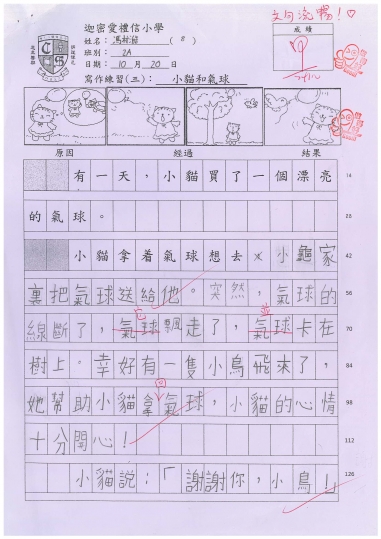 迦密愛禮信小學
文句流暢！
姓名：
班別： 2A
日期： 10 月 20 日
成績
寫作練習(三)： 小貓和氣球
原因 經過 結果
有一天，小貓買了一個漂亮 14
的氣球。 28
小貓拿着氣球想去 小龜家 42
裏把氣球送給他。突然，氣球的 56
它 並
線斷了，氣球飄走了，氣球卡在 70
樹上。幸好有一隻小鳥飛來了， 84
回
她幫助小貓拿氣球，小貓的心情 98
十分開心！ 112
小貓說：「謝謝你，小鳥！」 126